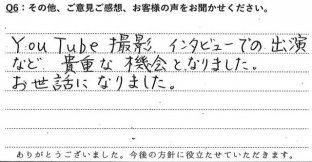 Q6：その他、ご意見ご感想、お客様の声をお聞かせください。
YouTube撮影、インタビューでの出演
など、貴重な機会となりました。
お世話になりました。
ありがとうございました。今後の方針に役立たせていただきます。